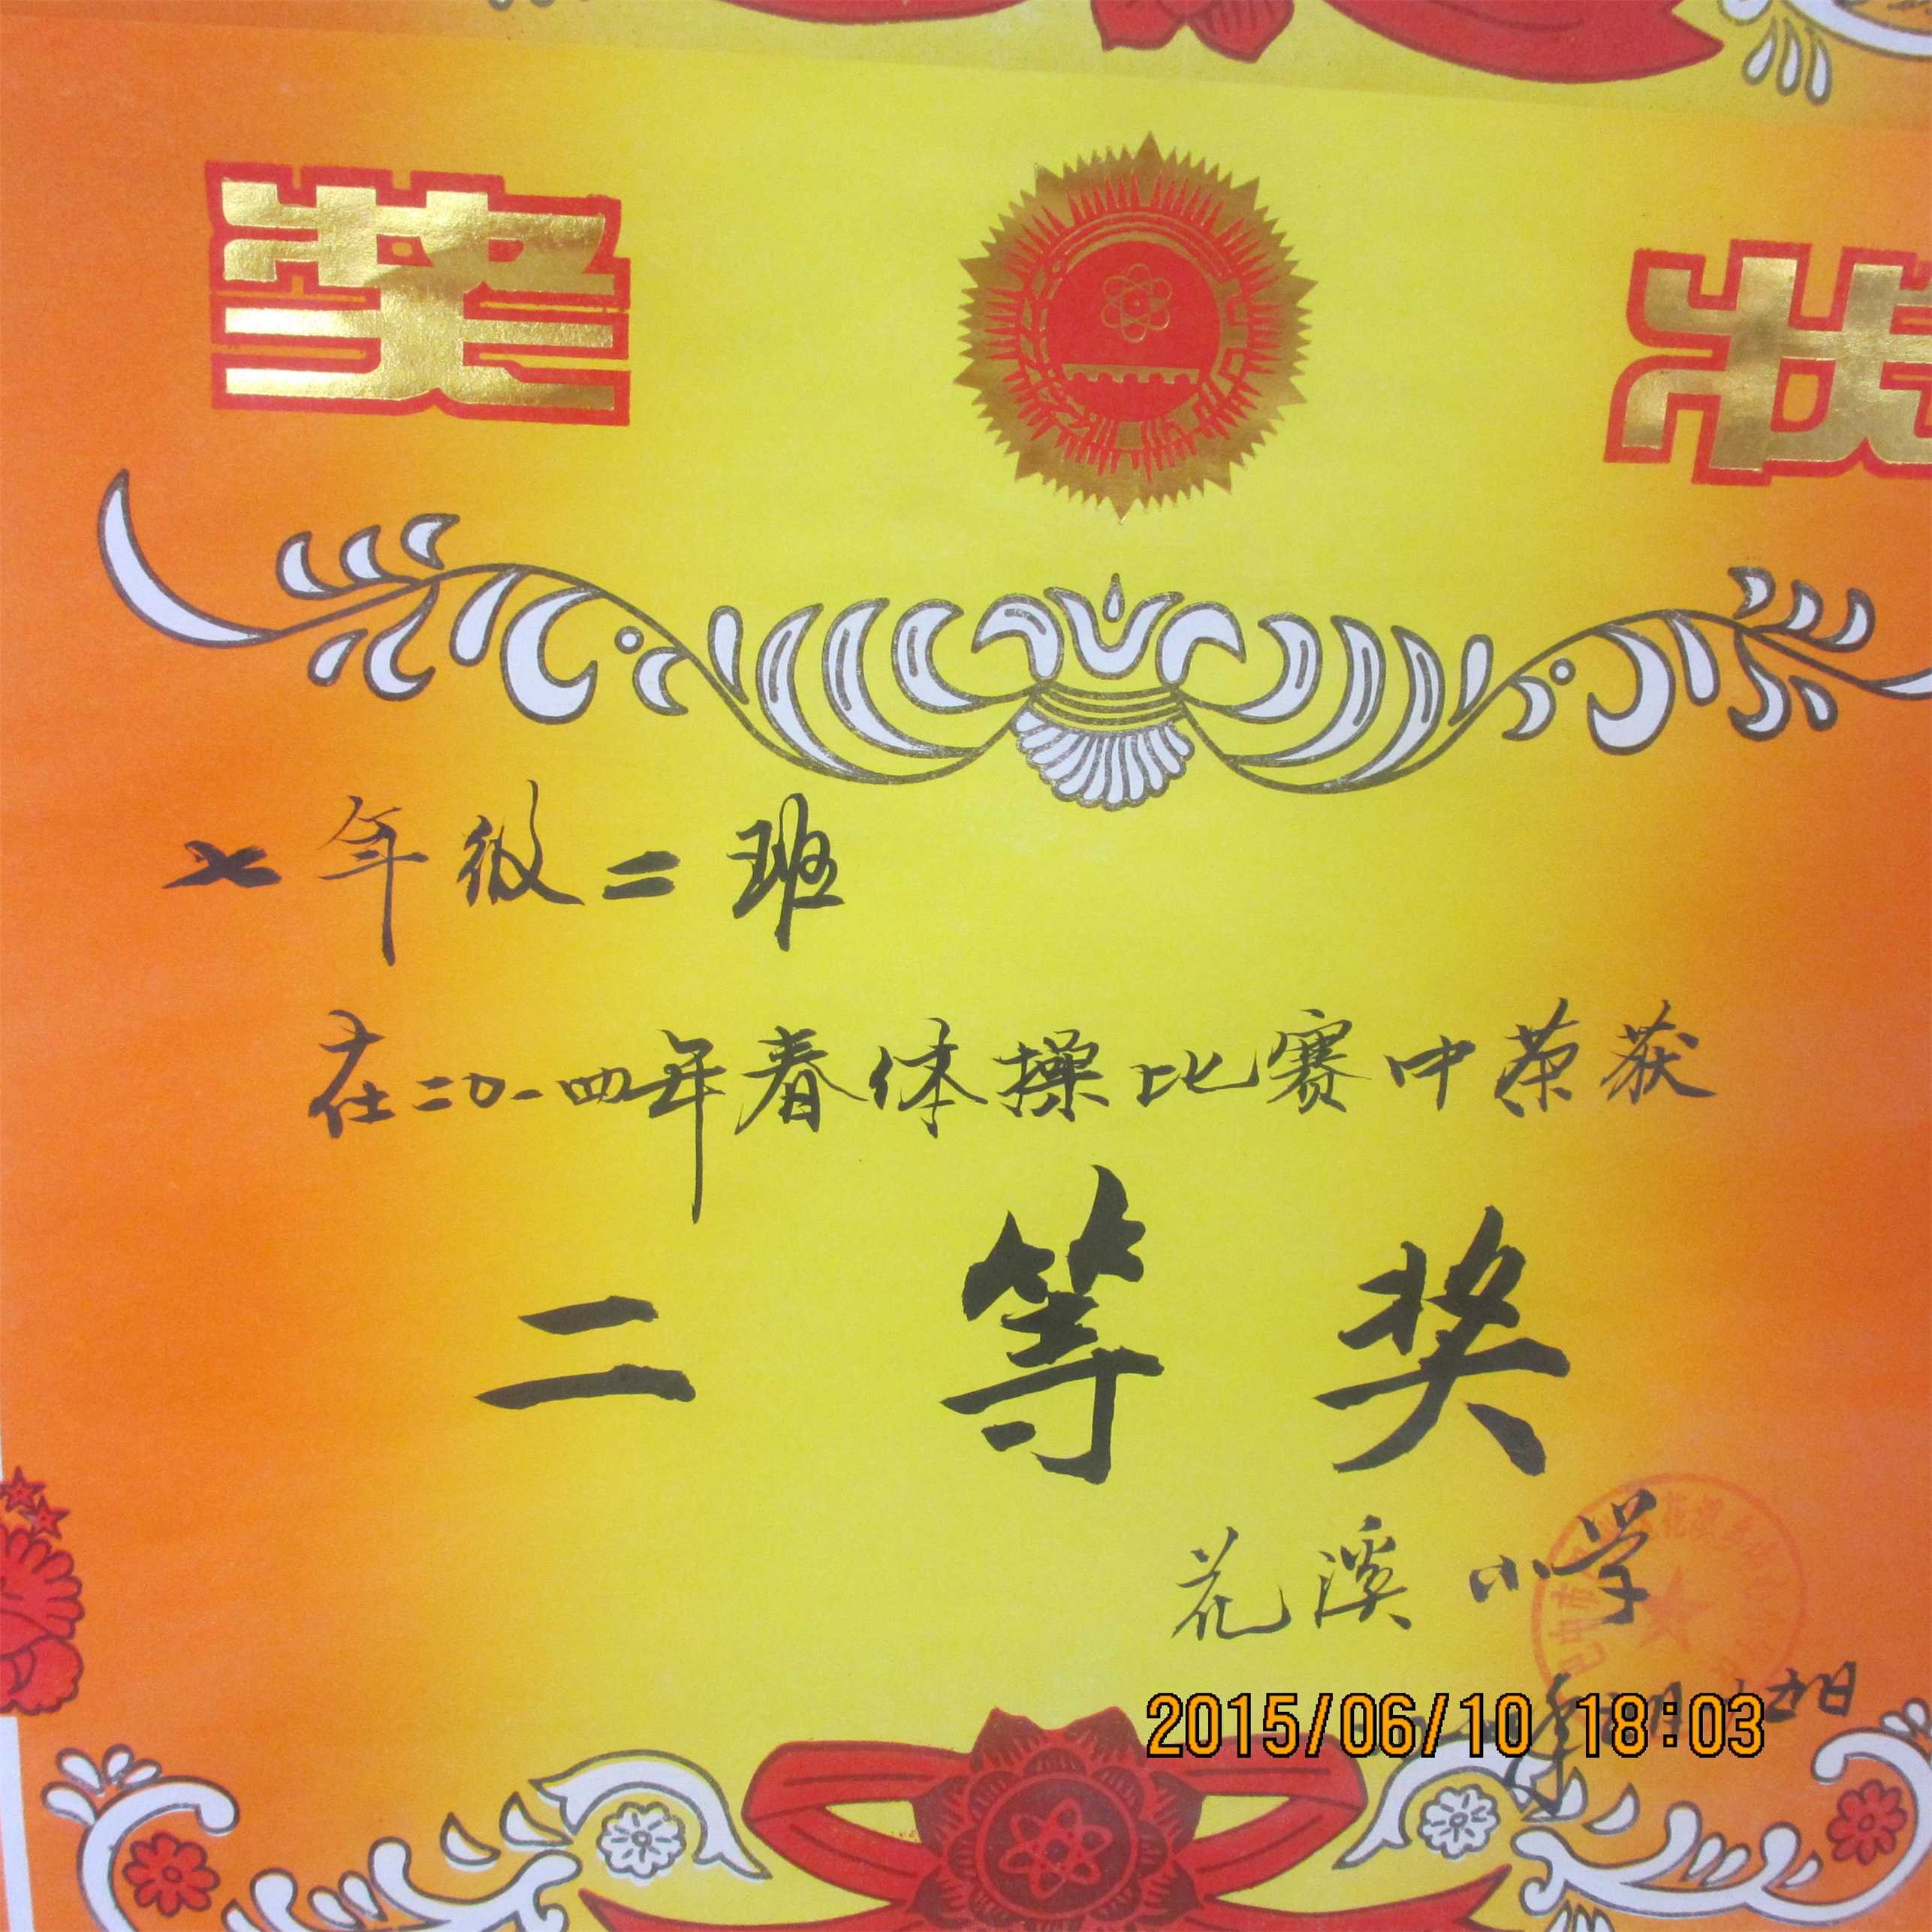 奖 状
七年级二班
在二0一四年春体操比赛中荣获
二等奖
花溪小学
2015/06/10 18:03